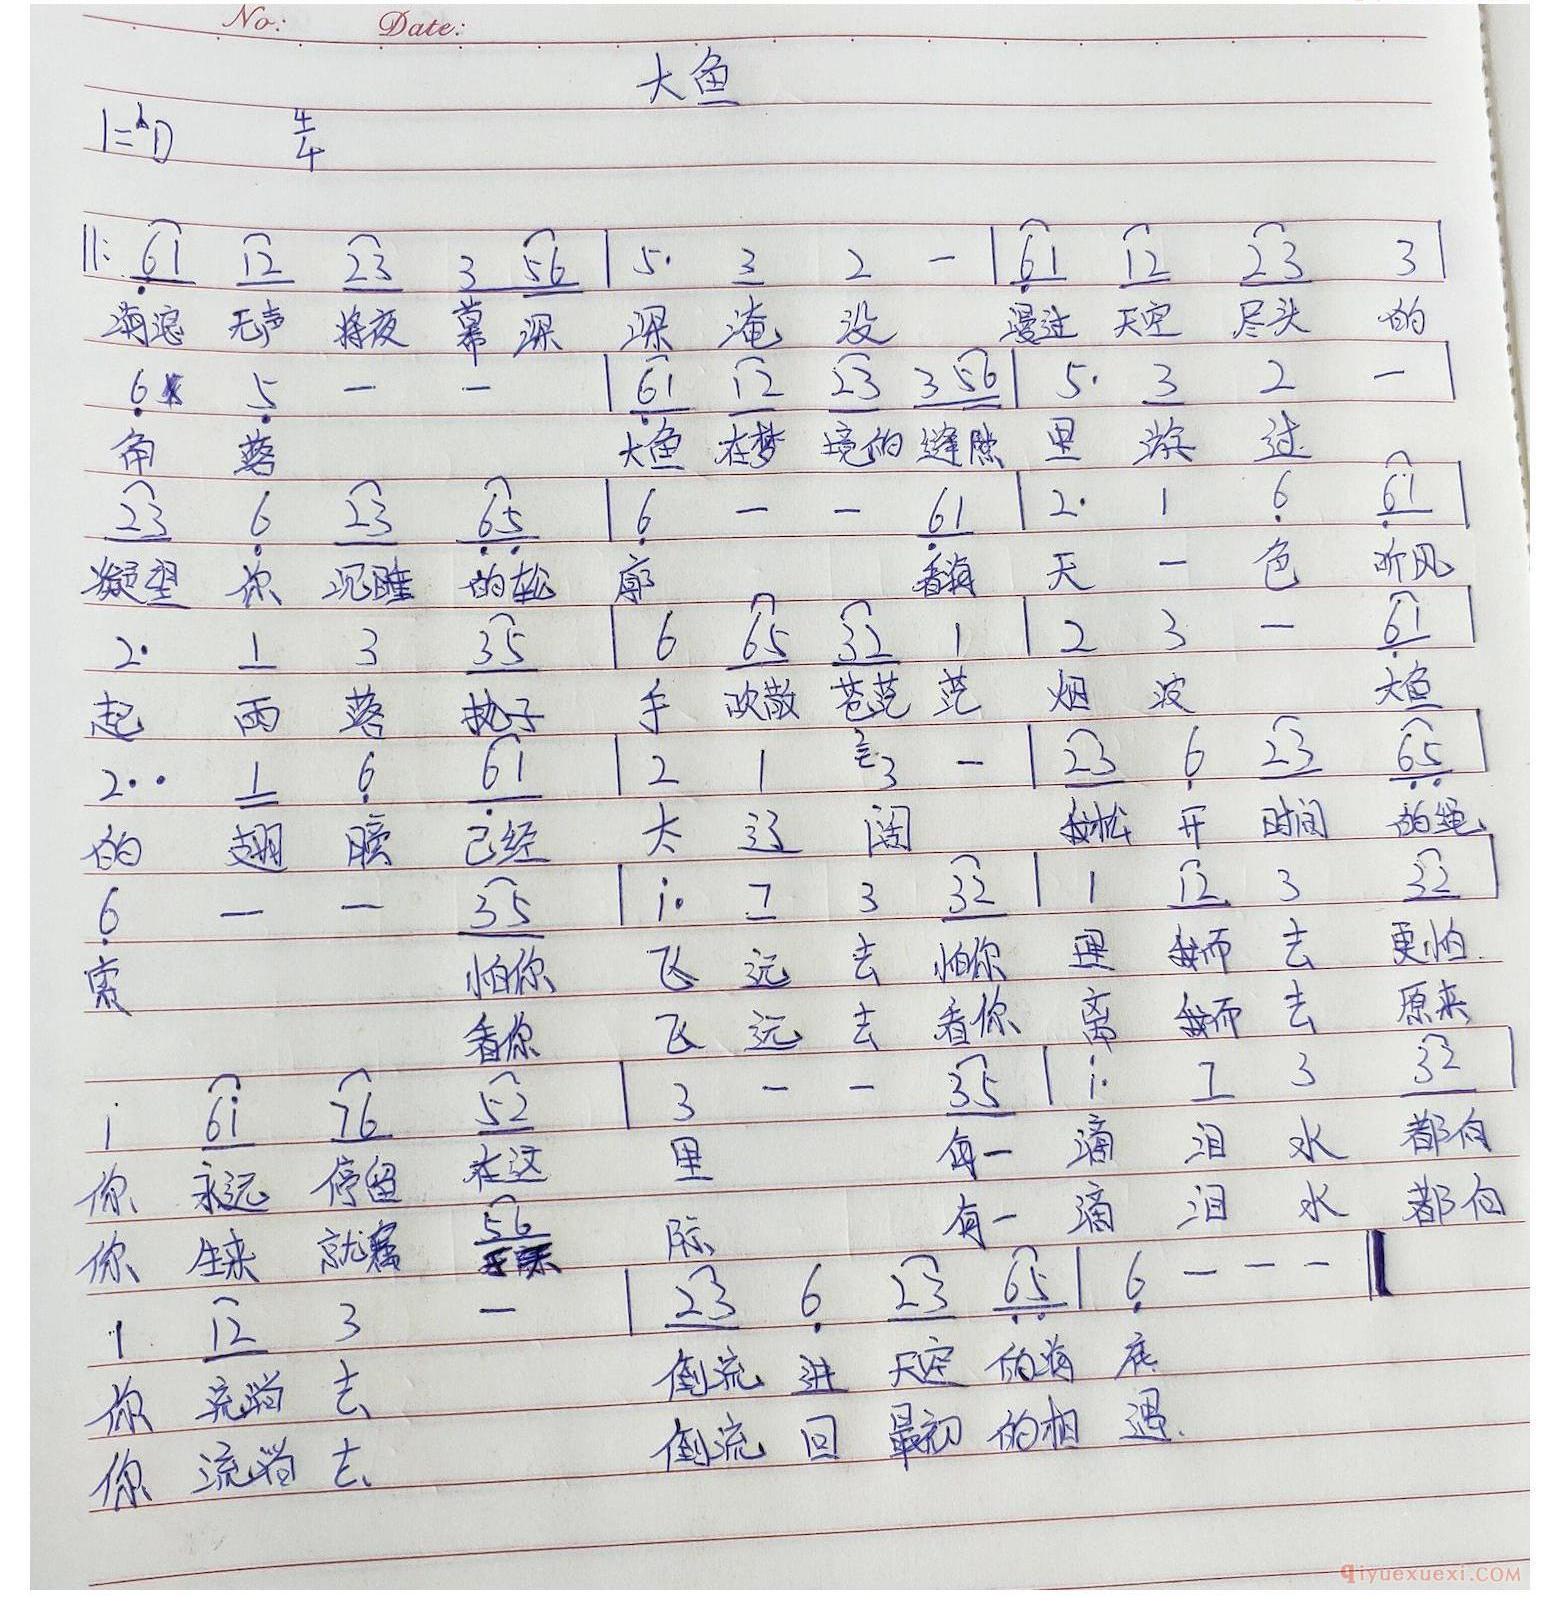 No:    Date:
大鱼
1=♭D    4/4
‖: 61 12 23 3 56 | 5· 3 2 - | 61 12 23 3 |
海浪 无声 将夜 幕 深 深 淹 没 漫过 天空 尽头 的
6 5 - - | 61 12 23 3 56 | 5· 3 2 - |
角 落 大鱼 在梦 境的 缝隙 里 游 过
23 6 23 65 | 6 - - 61 | 2· 1 6 61 |
凝望 你 沉睡 的轮 廓 看海 天 一 色 听风
2· 1 3 35 | 6 65 32 1 | 2 3 - 61 |
起 雨 落 执子 手 吹散 苍茫 茫 烟 波 大鱼
2·· 1 6 61 | 2 1 2 3 - | 23 6 23 65 |
的 翅 膀 已经 太 辽 阔 我松 开 时间 的绳
6 - - 35 | i· 7 3 32 | 1 12 3 32 |
索 怕你 飞 远 去 怕你 里 我而 去 更怕
看你 飞 远 去 看你 离 我而 去 原来
i 6i 76 52 | 3 - - 35 | i· 7 3 32 |
你 永远 停留 在这 里 每一 滴 泪 水 都向
56
你 生来 就属 际 有一 滴 泪 水 都向
1 12 3 - | 23 6 23 65 | 6 - - - ‖
你 流淌 去 倒流 进 天空 的海 底
你 流淌 去 倒流 回 最初 的相 遇.
qiyuexuexi.COM